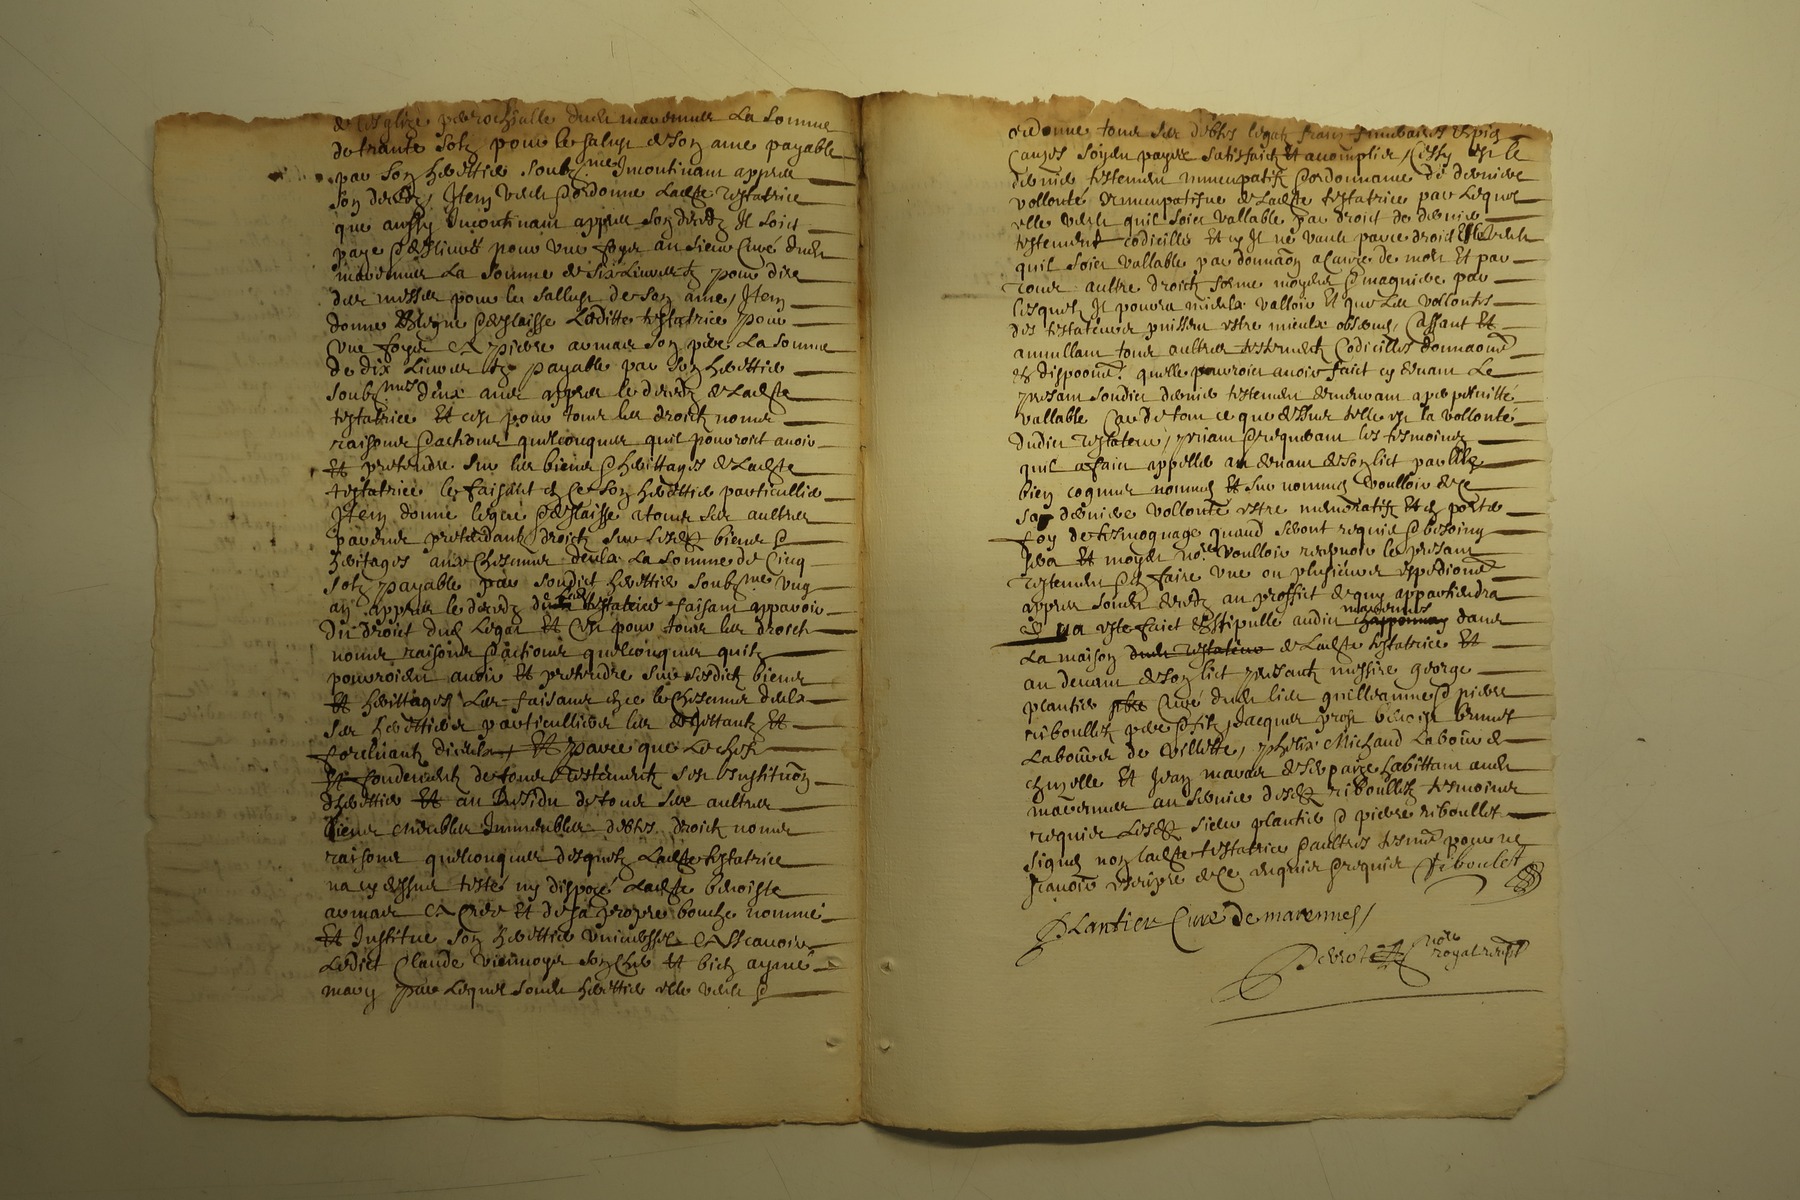 de lesglize parrochialle dudit marennes La somme
de trante solz pour le salut de son ame payable
par son herittier soubz.né Incontinant appres
son decedz, Item veult & ordonne Ladte testatrice
que aussy Incontinant appres son decedz Il soict
paye & deslivré pour une foys au sieur Curé dudit
marennes La somme de six Livres tz pour dire
des messes pour le sallut de son ame, Item
donne Legue & deslaisse Laditte testatrice pour
une foys A pierre armand son pere La somme
de dix Livres tz payable par son herittier
soubz.né deux ans appres le decedz de Ladte
testatrice Et cest pour tous les droictz noms
raisons & actions quelconques quil pourroict avoir
Et pretendre sur les biens & herittages de Ladte
testatrice le faisant en ce son herittier particullier
Item donne legue & deslaisse a tous ses aultres
parens pretendantz droictz sur sesdtz biens &
heritages au Chescung deulx La somme de Cinq
solz payable par sondict herittier soubz.né ung
an appres le decedz de ladte testatrice faisant apparoir
du droict dud Legat Et Cest pour tous les droictz
noms raisons & actions quelconques quilz
pourroient avoir Et pretendre sur sesdictz biens
Et herittages Les faisant en ce le Chescung deulx
ses herittiers particulliers les dejettantz Et
forcluantz diceulx, Et parce que Le chef
Et fondement de tous testamentz est Institution
dherittier Et au Residu de tous ses aultres
biens meubles Immeubles debtes droictz noms
raisons quelconques desquelz Ladte testatrice
na cy dessus testé ny disposé Ladte benoiste
armand A Créé Et de sa propre bouche nommé
Et Institue son herittier universel A Scavoir
Ledict Claude viennoys son cher Et bien aymé
mary par Lequel sondit herittier elle veult &
ordonne tous ses debtes legatz fraiz funeraires & piez
Causes soyent payés satisfaictz Et accomplies, Cessy est le
dernier testement nuncupatif & ordonnance de derniere
vollonté nuncupatifve de Ladte testatrice par Lequel
elle veult quil soict vallable par droict de dernier
testement codicille Et sy Il ne vault par ce droict Elle veult
quil soict vallable par donnaôn a cause de mort Et par
tous aultre droictz forme moyens & maniere par
lesquels Il pourra mieulx valloir Et que Les vollontes
des testateurs puissent estre mieulx observés, Cassant Et
annullant tous aultres testementz Codicilles donnaons
& disposons quelle pourroict avoir faict cy devant Le
presant sondict dernier testement demeurant a perpetuitté
vallable Car de tout ce que dessus telle est la vollonté
dudict testateur, priant & requerant les tesmoings
quil a faict appeller au devant de son lict par elle
bien cogneus nommés Et surnommés voulloir de ce
sa derniere vollonté estre memoratifz Et en porter
foy de tesmognage quand seront requis & besoing
sera Et moyet no.re voulloir recepvoir le presant
testement & en faire une ou plusieurs expeditions
appres sondit decedz au proffict de quy appartiendra
& na este faict & stipullé audict marennes dans
La maison de Ladte testatrice Et
au devant de son lict presantz messire george
plantier Curé dudit lieu guilleaume & pierre
riboulletz pere & filz, Jacques prost benoist brunet
Laboure de villette, phelix Michaud Laboure de
chuzelle Et Jean habittant audit
marennes au service desdtz riboulletz tesmoins
requis Lesdtz sieur plantier & pierre riboullet
signés non ladte testatrice & aultres tesms pour ne
scavoir escripre de ce enquis & requis Riboulet
Plantier Curé de marennes,
no.re
royal